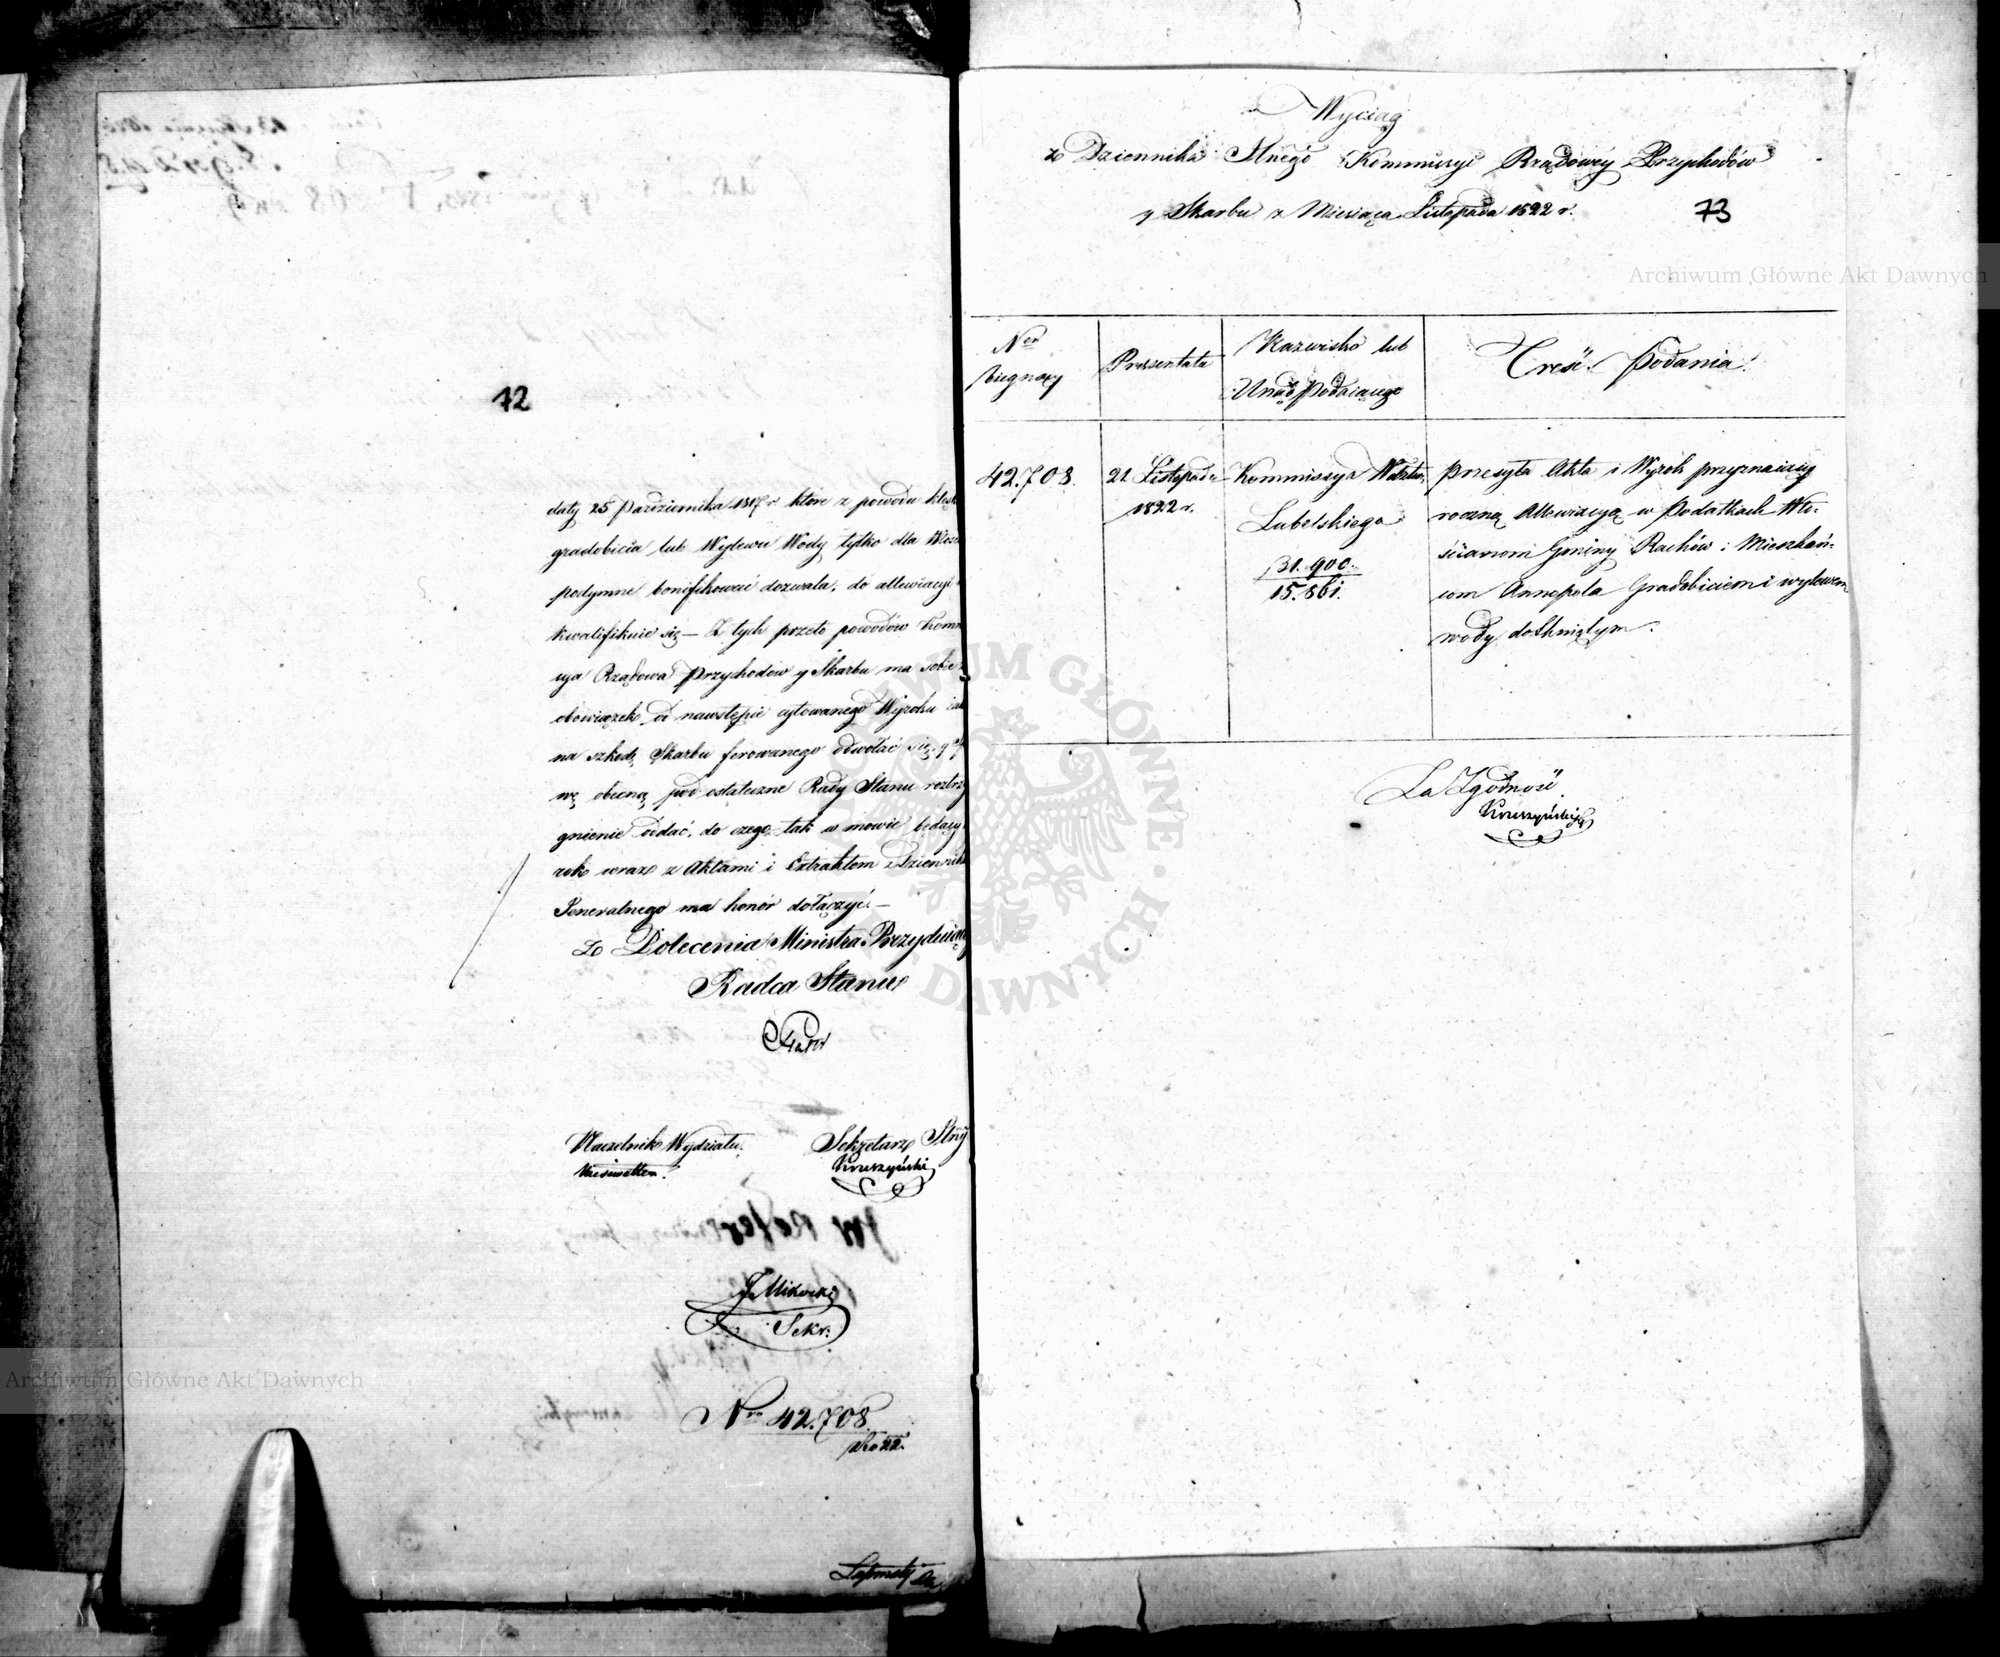 72
daty 25 Października 1817 r. które z powodu klęsk
gradobicia lub Wylewu Wody tylko dla
podymne bonifikować dozwala, do allewiacyi
kwalifikuie się — Z tych przeto powodów Komm
cya Rządowa Przychodów y Skarbu ma sobie
obowiązek od nawstępie cytowanego Wyroku iak
na szkodę Skarbu ferowanego odwołać się, y
wę obecną pod ostateczne Rady Stanu roztrzy
gnienie oddać, do czego tak w mowie będący
rok wraz z Aktami i Extraktem z Dziennika
Generalnego ma honor dołączyć. —
Z Polecenia Ministra Prezyduiące
Radca Stanu
Naczelnik Wydziału.
Sekretarz Jlny
Kruszyński
Sekr:
Nro 42.708.
1822.
Wyciąg
z Dziennika Jlnego Kommissyi Rządowey Przychodów
y Skarbu z Miesiąca Listopada 1822 r.
73
Ner
bieżący
Prezentata
Nazwisko lub
Urząd Podaiącego
Treść Podania.
42.708.
21 Listopada
1822 r.
Kommissya Wdztwa
Lubelskiego
31.900.
15.861.
przesyła Akta i Wyrok przyznaiący
roczną Allewiacyą w Podatkach Wło-
ścianom Gminy Rachów i Mieszkań-
com Annopola Gradobiciem i wylewem
wody dotkniętym.
Za Zgodność
Kruszyński
Archiwum Główne Akt Dawnych
Archiwum Główne Akt Dawnych